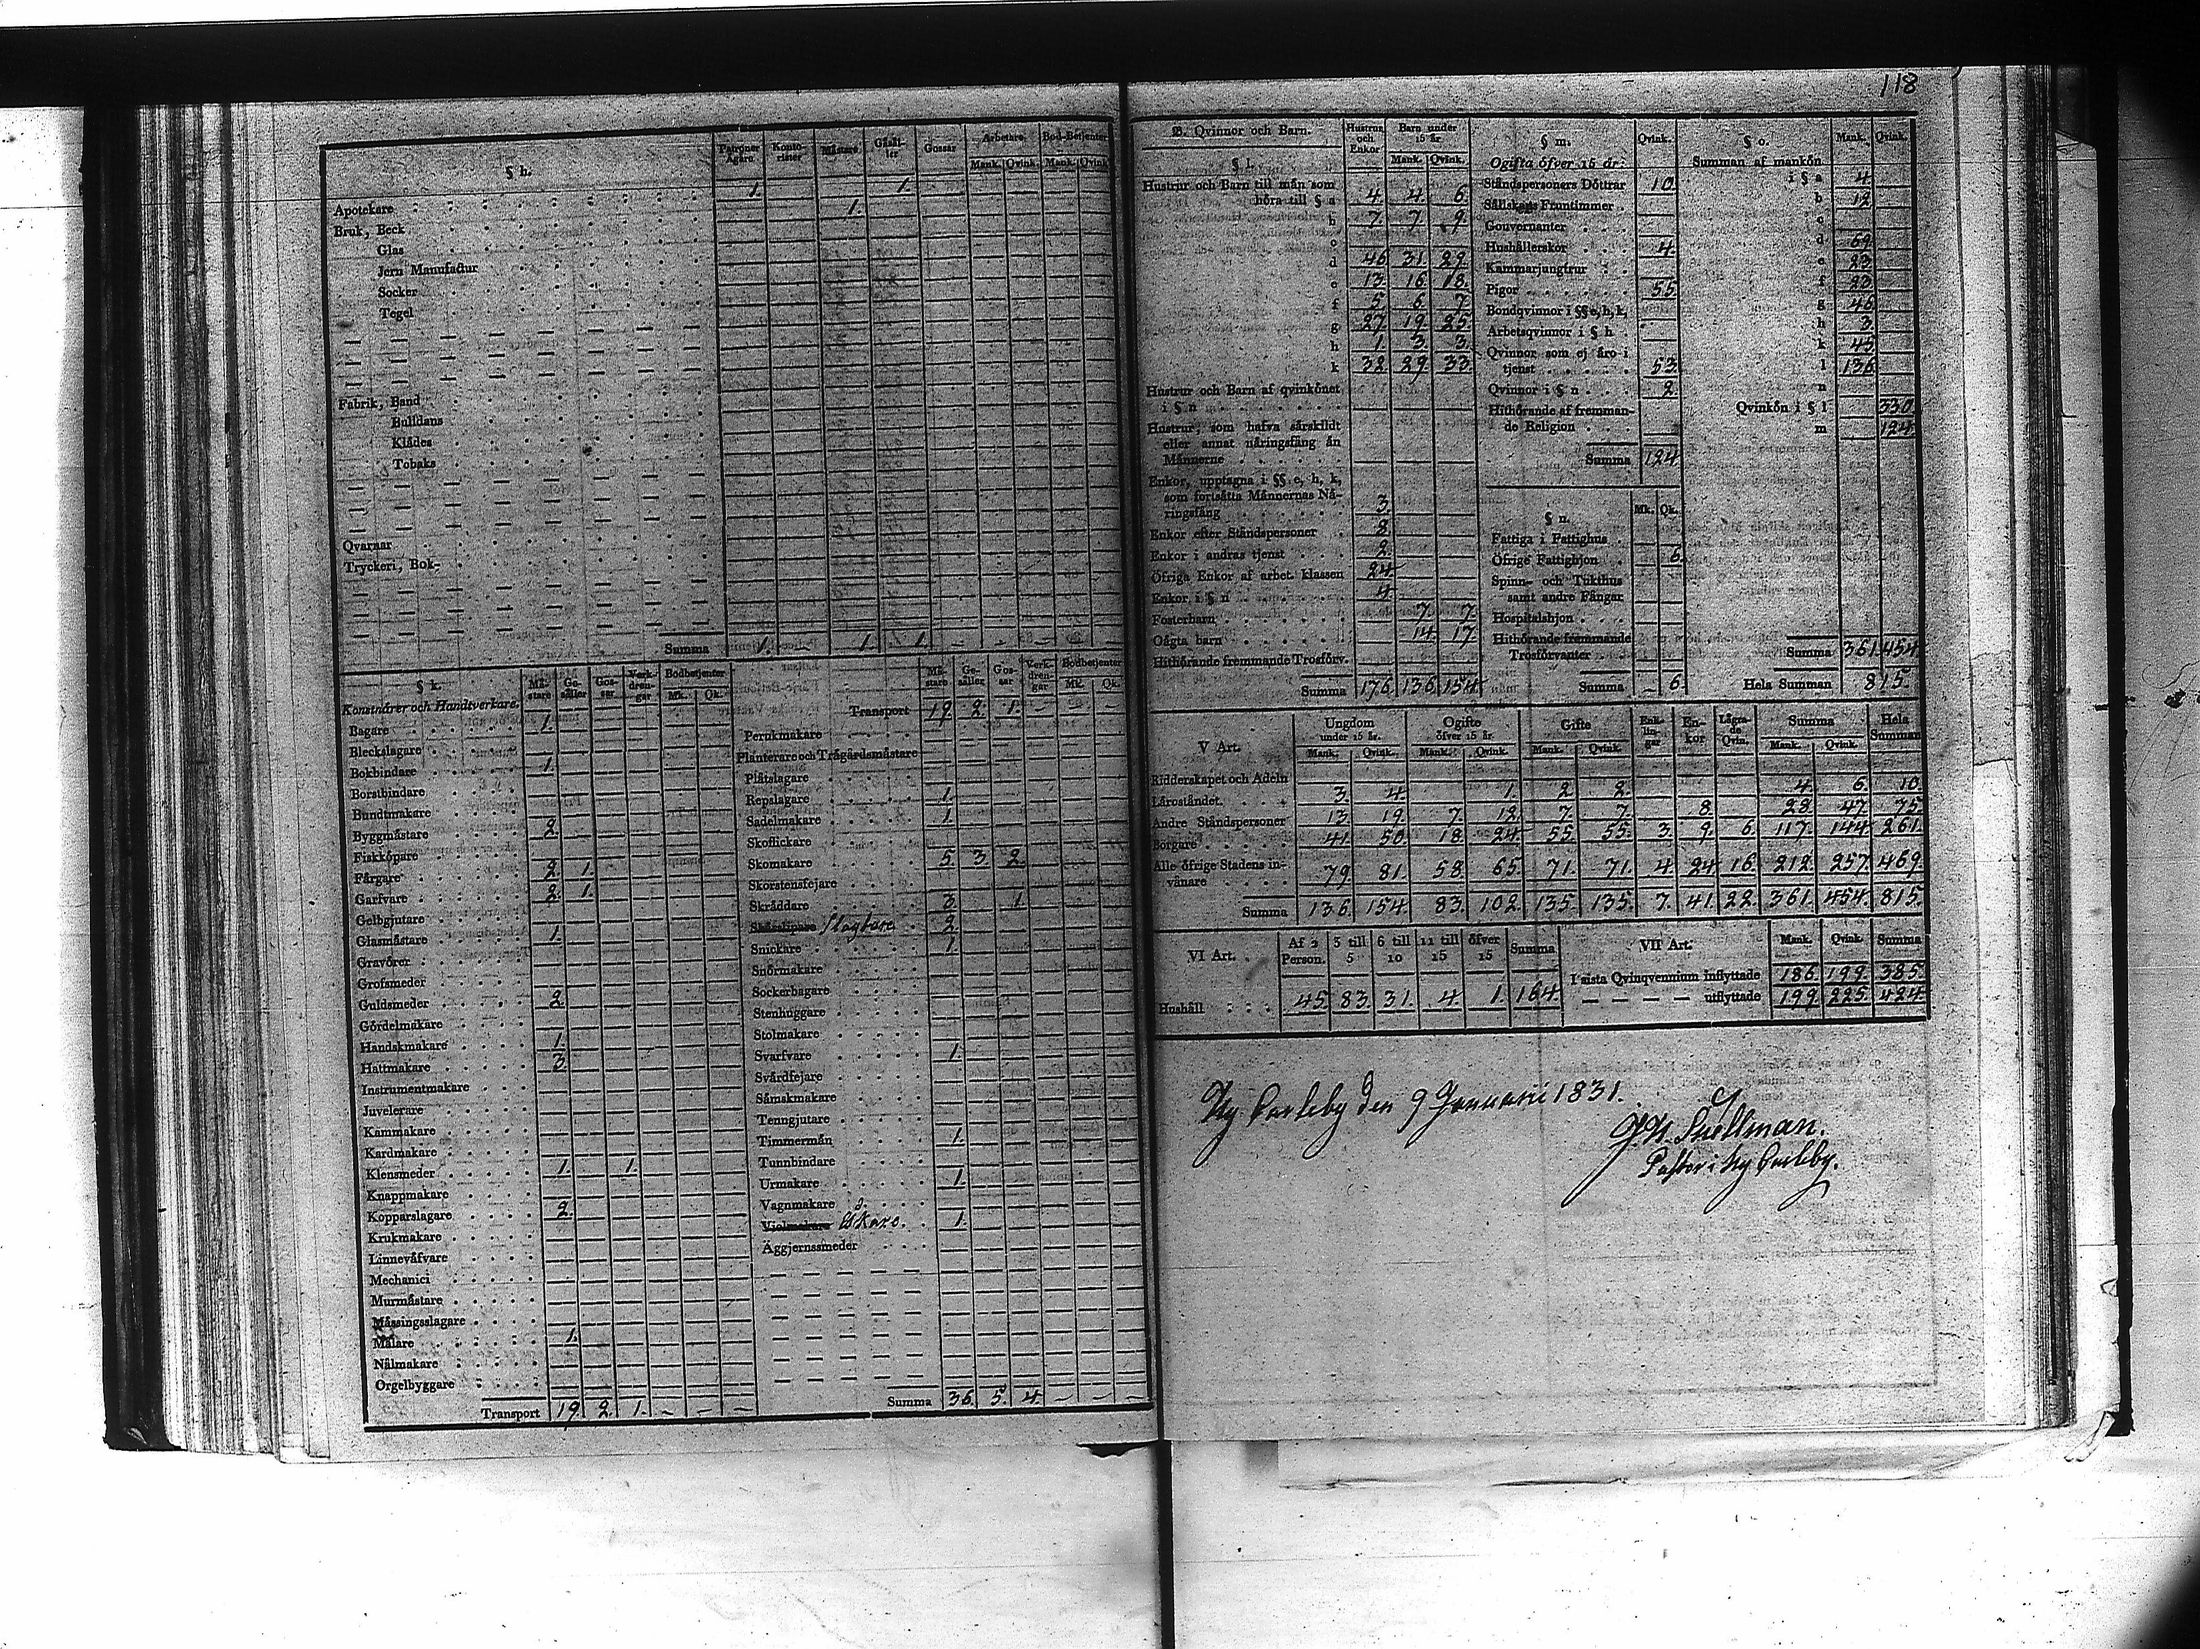 118
§ h.
Patroner Ägare. Konto-rister Mästare. Gesäl-ler Gossar Arbetare. Bod-Betjenter
Mank. Qvink. Mank. Qvink.
Apotekare 1. 1.
Bruk, Beck 1.
Glas
Jern Manufactur
Socker
Tegel
Fabrik, Band
Buldans
Klädes
Tobaks
Qvarnar
Tryckeri, Bok-
Summa 1. – 1. 1. – – – – –
§ k.
Mä-stare Ge-säller Gos-sar Verk-dren-gar Bodbetjenter
Mk. Qk.
Konstnärer och Handtverkare.
Bagare 1.
Bleckslagare
Bokbindare 1.
Borstbindare
Bundtmakare
Byggmästare 2.
Fiskköpare
Färgare 2. 1.
Garfvare 2. 1.
Gelbgjutare
Glasmästare 1.
Gravörer
Grofsmeder
Guldsmeder 2.
Gördelmakare
Handskmakare 1.
Hattmakare 3.
Instrumentmakare
Juvelerare
Kammakare
Kardmakare
Klensmeder 1. 1.
Knappmakare
Kopparslagare 2.
Krukmakare
Linnevåfvare
Mechanici
Murmästare
Mässingsslagare
Målare 1.
Nålmakare
Orgelbyggare
Transport 19. 2. 1. – – –
Mä-stare Ge-säller Gos-sar Verk-dren-gar Bodbetjenter
Mk. Qk.
Transport 19. 2. 1. – – –
Perukmakare
Planterare och Trägårdsmästare
Plåtslagare
Repslagare 1.
Sadelmakare 1.
Skoflickare
Skomakare 5. 3. 2.
Skorstensfejare
Skräddare 3. 1.
Slagtare 2.
Snickare 1.
Snörmakare
Sockerbagare
Stenhuggare
Stolmakare
Svarfvare 1.
Svärdfejare
Sämskmakare
Tenngjutare
Timmermän 1.
Tunnbindare
Urmakare 1.
Vagnmakare
Violmakare Åkare. 1.
Äggjernssmeder
Summa 36. 5. 4. – – –
B. Qvinnor och Barn.
Hustrur och Enkor Barn under 15 år.
Mank. Qvink.
§ l.
Hustrur och Barn till män som
höra till § a 4. 4. 6.
b 7. 7. 9.
c
d 46. 31. 29.
e 13. 16. 18.
f 5. 6. 7.
g 27. 19. 25.
h 1. 3. 3.
k 32. 29. 33.
Hustrur och Barn af qvinkönet
i § n
Hustrur, som hafva särskildt
eller annat näringsfång än
Männerne
Enkor, upptagna i §§ e, h, k,
som fortsätta Männernas Nä-
ringsfång 3.
Enkor efter Ståndspersoner 8.
Enkor i andras tjenst 2.
Öfriga Enkor af arbet. klassen 24.
Enkor i § n 4.
Fosterbarn 7. 7.
Oägta barn 14. 17.
Hithörande fremmande Trosförv.
Summa 176. 136. 154.
§ m. Qvink.
Ogifta öfver 15 år:
Ståndspersoners Döttrar 10.
Sällskaps Fruntimmer
Gouvernanter
Hushållerskor 4.
Kammarjungfrur
Pigor 55.
Bondqvinnor i §§ e, h, k,
Arbetsqvinnor i § h
Qvinnor som ej äro i
tjenst 53.
Qvinnor i § n 2.
Hithörande af fremman-
de Religion
Summa 124.
§ n. Mk. Qk.
Fattiga i Fattighus
Öfrige Fattighjon 6.
Spinn- och Tukthus
samt andre Fångar
Hospitalshjon
Hithörande fremmande
Trosförvanter
Summa – 6.
§ o. Mank. Qvink.
Summan af mankön
i § a 4.
b 12.
c
d 69.
e 23.
f 23.
g 46.
h 3.
k 45.
l 136.
n
Qvinkön i § l 330.
m 124.
Summa 361. 454.
Hela Summan 815.
V Art. Ungdom under 15 år. Ogifte öfver 15 år. Gifte Enk-lin-gar En-kor Lägra-de Qvin. Summa Hela Summan
Mank. Qvink. Mank. Qvink. Mank. Qvink. Mank. Qvink.
Ridderskapet och Adeln
Läroståndet 3. 4. 1. 2. 2. 4. 6. 10.
Andre Ståndspersoner 13. 19. 7. 12. 7. 7. 8. 28. 47. 75.
Borgare 41. 50. 18. 24. 55. 55. 3. 9. 6. 117. 144. 261.
Alle öfrige Stadens in-
vånare 79. 81. 58. 65. 71. 71. 4. 24. 16. 212. 257. 469.
Summa 136. 154. 83. 102. 135. 135. 7. 41. 22. 361. 454. 815.
VI Art. Af 2 Person. 3 till 5 6 till 10 11 till 15 öfver 15 Summa
Hushåll 45. 83. 31. 4. 1. 164.
VII Art. Mank. Qvink. Summa
I sista Qvinqvennium Inflyttade 186. 199. 385.
— — — — utflyttade 199. 225. 424.
Ny Carleby den 9 Januarii 1831.
Snellman.
Pastor i Ny Carleby.